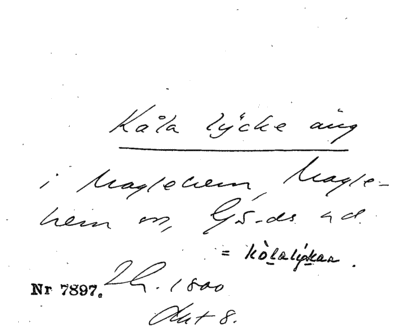 Kåla lycke äng
i Maglehem, Magle-
hem sn, Gs-ds hd.
= kòlalykan.
Nr 7897. Lh. 1800
Akt 8.